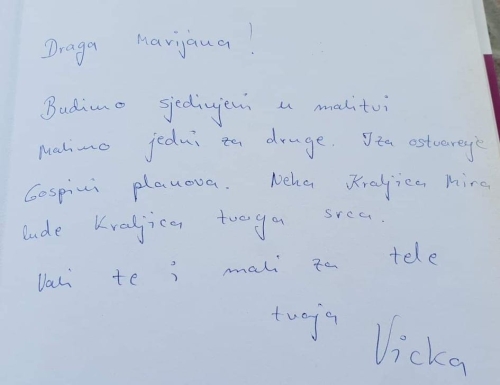 Draga Marijana!
Budimo sjedinjeni u malitvi
Malimo jedni za druge. I za ostvarenje
Gospini planova. Neka Kraljica Mira
bude Kraljica tvaga srca.
Vali te i mali za tebe
tvoja
Vicka